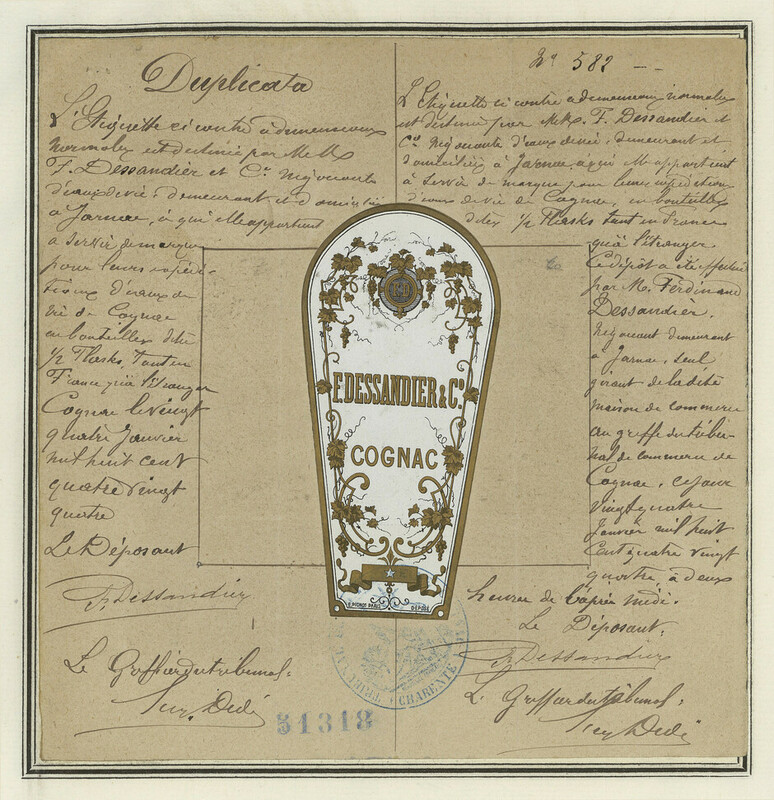 Duplicata
L'Etiquette ci contre a dimensions
normales est destinée par MM
F. Dessandier et Cie négociants
d'eaux de vie, demeurant et domiciliés
à Jarnac, à qui elle appartient
à servir de marque
pour leurs expédi-
tions d'eaux de
vie de Cognac
en bouteilles dites
1/2 Flasks, tant en
France qu'à l'étranger
Cognac le vingt
quatre Janvier
mil huit cent
quatre vingt
quatre
Le Déposant
F. Dessandier
Le Greffier du tribunal:
No 582
L'Etiquette ci contre a dimensions normales
est destinée par MM. F. Dessandier et
Cie négociants d'eaux de vie, demeurant et
domiciliés à Jarnac, à qui elle appartient
à servir de marque pour leurs expéditions
d'eaux de vie de Cognac, en bouteilles
dites 1/2 Flasks tant en France
qu'à l'étranger.
Ce dépôt a été effectué
par Mr. Ferdinand
Dessandier,
négociant demeurant
à Jarnac, seul
gérant de la dite
maison de commerce
au greffe du tribu-
nal de commerce de
Cognac, ce jour
vingt quatre
Janvier mil huit
cent quatre vingt
quatre, à deux
heures de l'après midi.
Le Déposant:
F. Dessandier
Le Greffier du tribunal:
F. DESSANDIER & Co.
COGNAC
DÉPOSÉ
CHARENTE
31318